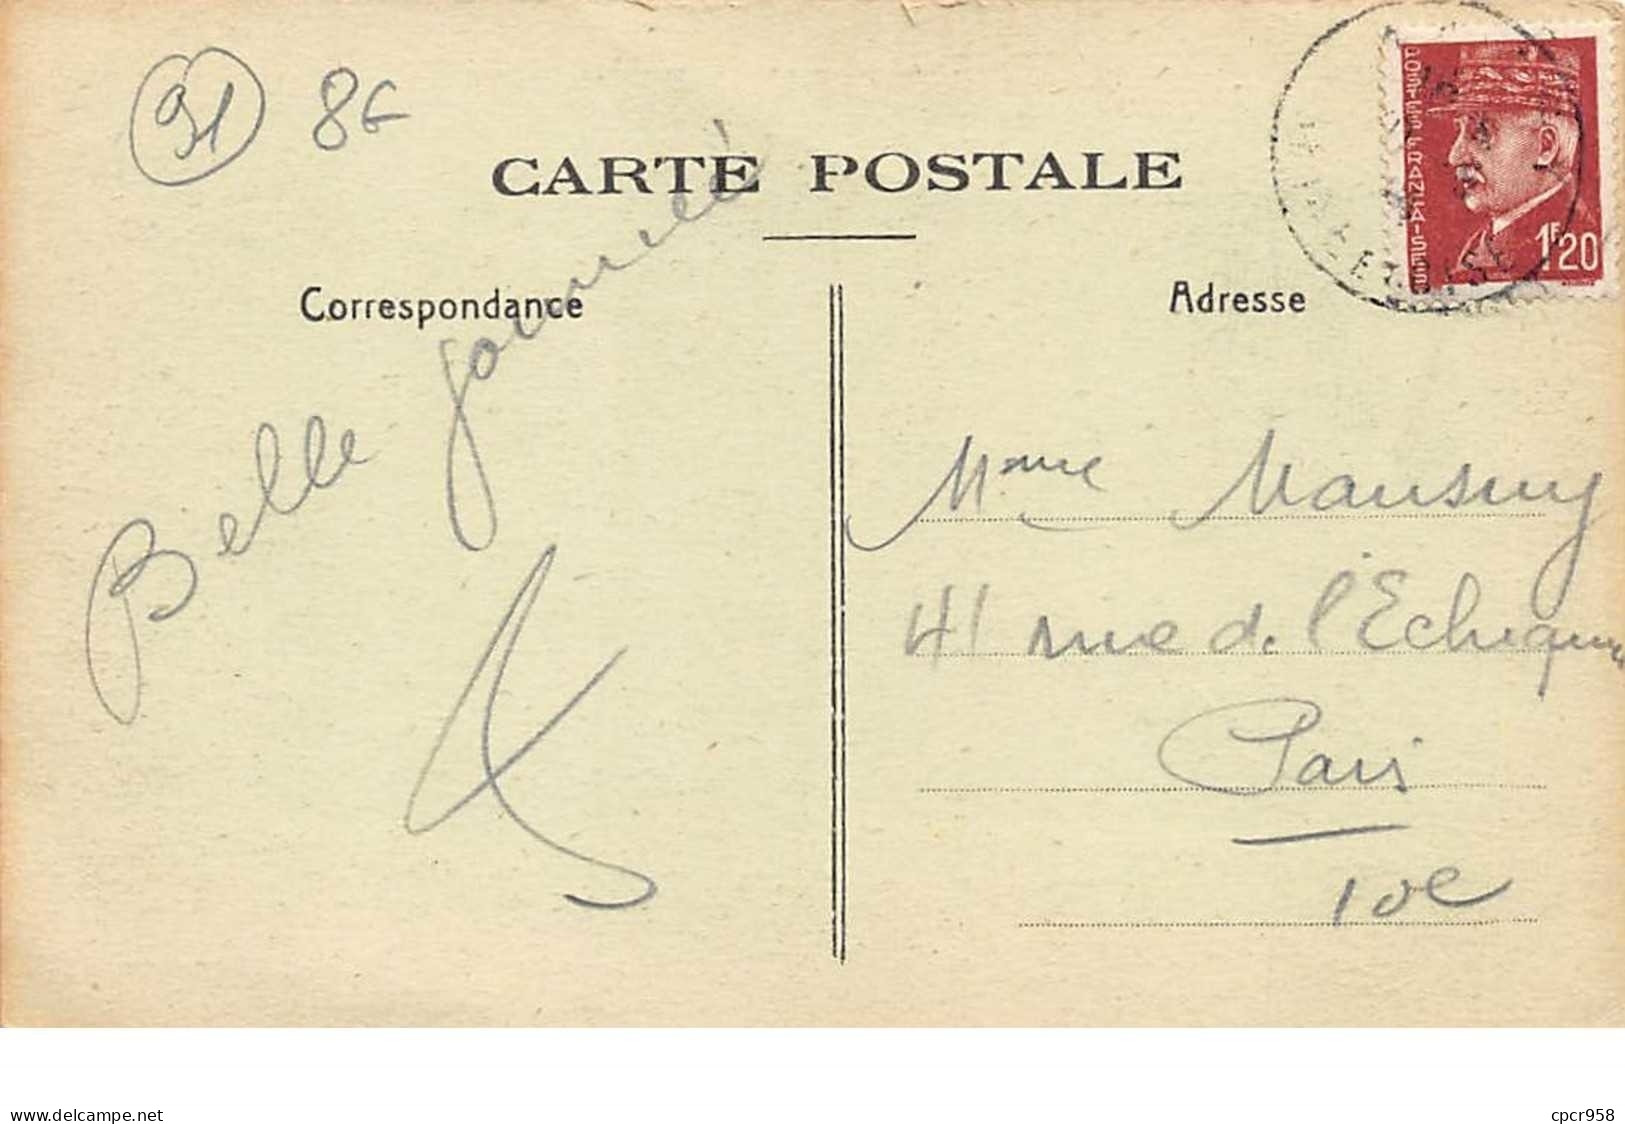 91 8€
CARTE POSTALE
Correspondance
Adresse
POSTES FRANÇAISES
1F20
ET-OISE
Belle journée
Mme Mansuy
41 rue de l'Echiquier
Paris
10e
www.delcampe.net
cpcr958